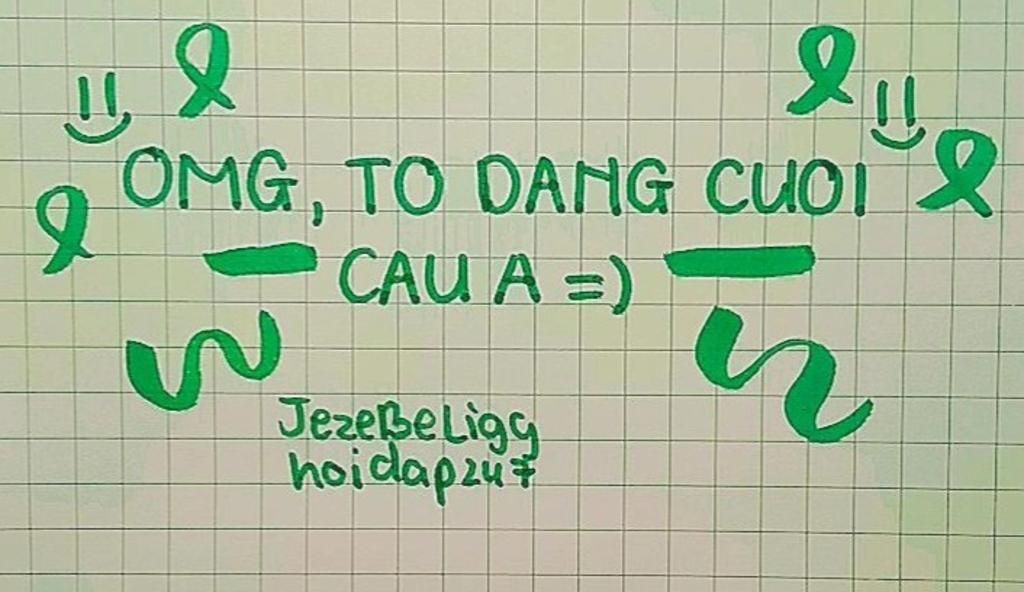 OMG, TO DANG CUOI
CAU A =)
JezeBeLigg
hoidap247